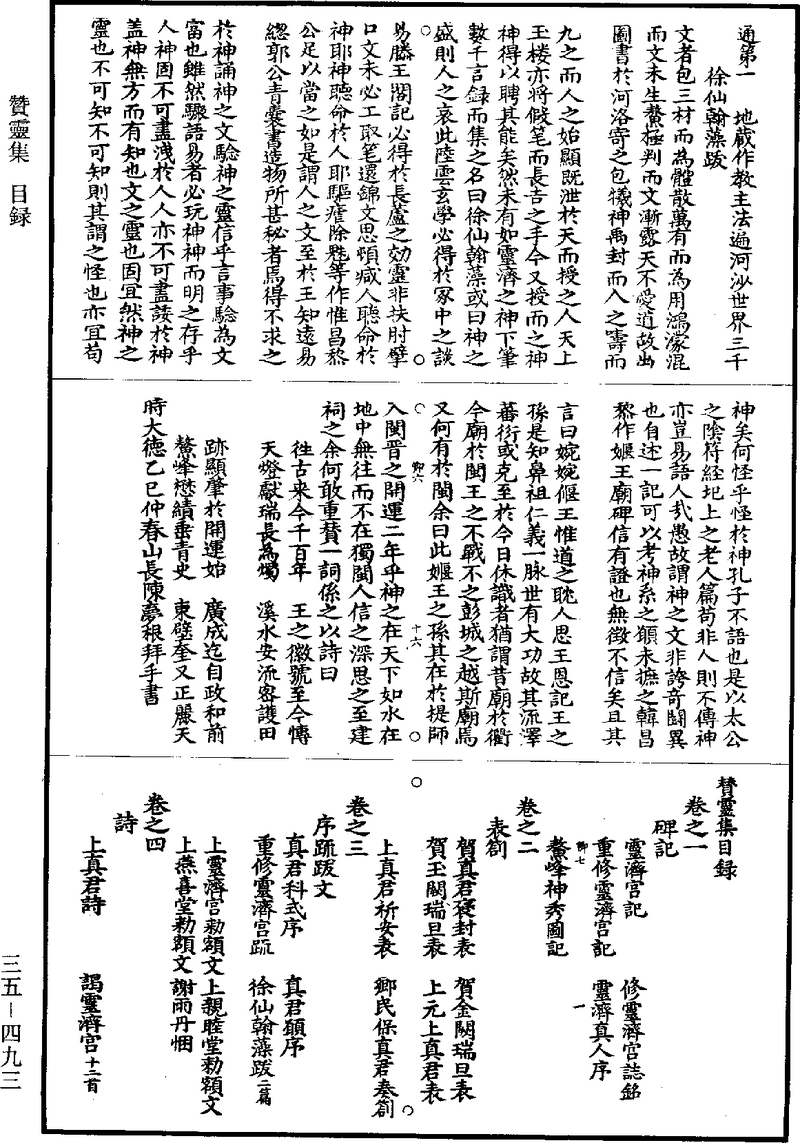 贊靈集　目録
三五－四九三
通第一　地藏作教主法遍河沙世界三千
徐仙翰藻跋
文者包三材而為體散萬有而為用鴻濛混
而文未生鼇極判而文漸露天不愛道故出
圖書於河洛寄之包犧神禹封而人之籌而
九之而人之始顯既泄於天而授之人天上
王楼亦將假笔而長吉之手今又授而之神
神得以聘其能矣然未有如靈濟之神下筆
數千言録而集之名曰徐仙翰藻或曰神之
盛則人之哀此陸雲玄學必得於冢中之談
易滕王閣記必得於長蘆之効靈非扶肘擘
口文未必工取笔還錦文思頓减人聽命於
神耶神聽命於人耶驅瘧除魃等作惟昌黎
公足以當之如是謂人之文至於王知遠易
緫郭公青囊書造物所甚秘者焉得不求之
於神誦神之文驗神之靈信乎言事驗為文
富也雖然驟語易者必玩神神而明之存乎
人神固不可盡洩於人人亦不可盡諉於神
盖神無方而有知也文之靈也固宜然神之
靈也不可知不可知則其謂之怪也亦宜苟
神矣何怪乎怪於神孔子不語也是以太公
之陰符經圯上之老人篇苟非人則不傳神
亦豈易語人㦲愚故謂神之文非誇奇鬪異
也自述一記可以考神系之顛末摭之韓昌
黎作偃王廟碑信有證也無徵不信矣且其
言曰婉婉偃王惟道之耽人思王恩記王之
孫是知鼻祖仁義一脉世有大功故其流澤
蕃衍或克至於今日休識者猶謂昔廟於衢
今廟於閩王之不戰不之彭城之越斯廟焉
又何有於閩余曰此偃王之孫其在於提師
卿六　十六
入閩晋之開運二年乎神之在天下如水在
地中無往而不在獨閩人信之深思之至建
祠之余何敢重賛一詞係之以詩曰
徃古来今千百年　王之徽號至今傳
天燈獻瑞長為燭　溪水安流密護田
跡顯肇於開運始　廣成迄自政和前
鰲峰懋績垂青史　東壁奎文正麗天
時大德乙巳仲春山長陳夢根拜手書
賛靈集目録
卷之一
碑記
靈濟宫記　修靈濟宫誌銘
重修靈濟宫記　靈濟真人序
卿七　一
鰲峰神秀圖記
卷之二
表劄
賀真君褒封表　賀金闕瑞旦表
賀玉闕瑞旦表　上元上真君表
上真君祈安表　鄉民保真君奏劄
卷之三
序䟽跋文
真君科式序　真君願序
重修靈濟宫䟽　徐仙翰藻跋二篇
上靈濟宫勑額文　上親睦堂勑額文
上燕喜堂勑額文　謝雨丹悃
卷之四
詩
上真君詩　謁靈濟宫十二首